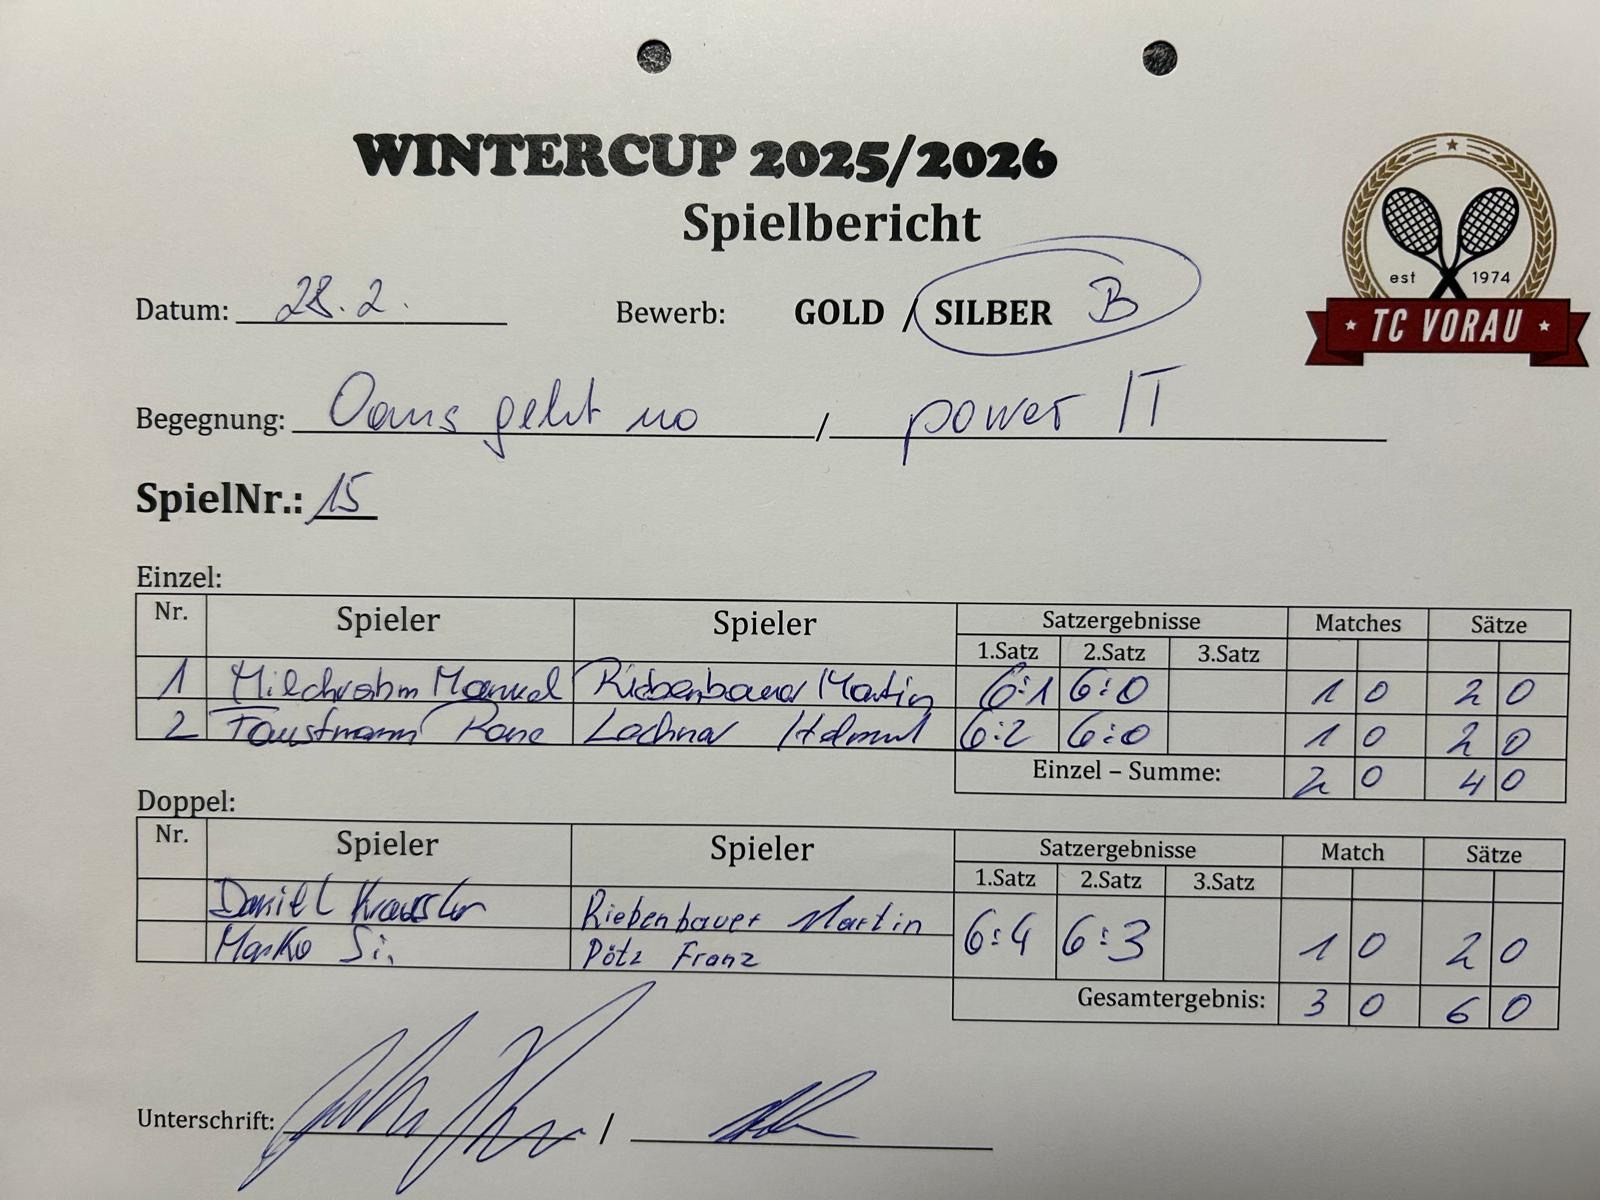 WINTERCUP 2025/2026
Spielbericht
est 1974
TC VORAU
Datum: 28.2. Bewerb: GOLD / SILBER B
Begegnung: Oans geht no / power IT
SpielNr.: 15
Einzel:
Nr. Spieler Spieler Satzergebnisse Matches Sätze
1.Satz 2.Satz 3.Satz
1 Milchrahm Manuel Riebenbauer Martin 6:1 6:0 1 0 2 0
2 Faustmann Rene Lechner Helmut 6:2 6:0 1 0 2 0
Einzel – Summe: 2 0 4 0
Doppel:
Nr. Spieler Spieler Satzergebnisse Match Sätze
1.Satz 2.Satz 3.Satz
Daniel Riebenbauer Martin 6:4 6:3 1 0 2 0
Si. Pötz Franz
Gesamtergebnis: 3 0 6 0
Unterschrift: /